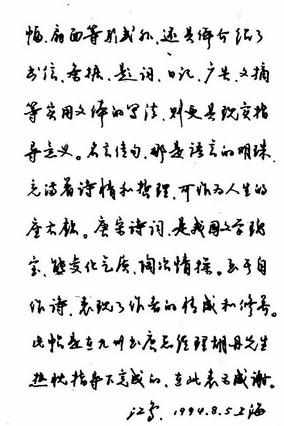 幅、扇面等形式外,还具体介绍了
书信、卷据、题词、日记、广告、文摘
等实用文体的写法,则更具现实指
导意义。名言佳句,那是语言的明珠,
充满着诗情和哲理,可作为人生的
座右铭。唐宋诗词,是我国文学瑰
宝,能变化气质,陶冶情操。至于自
作诗,表现了作者的情感和修养。
此帖是在九州出展总经理胡丹先生
热忱指导下完成的,在此表示感谢。
江鸟,1994.8.5上海